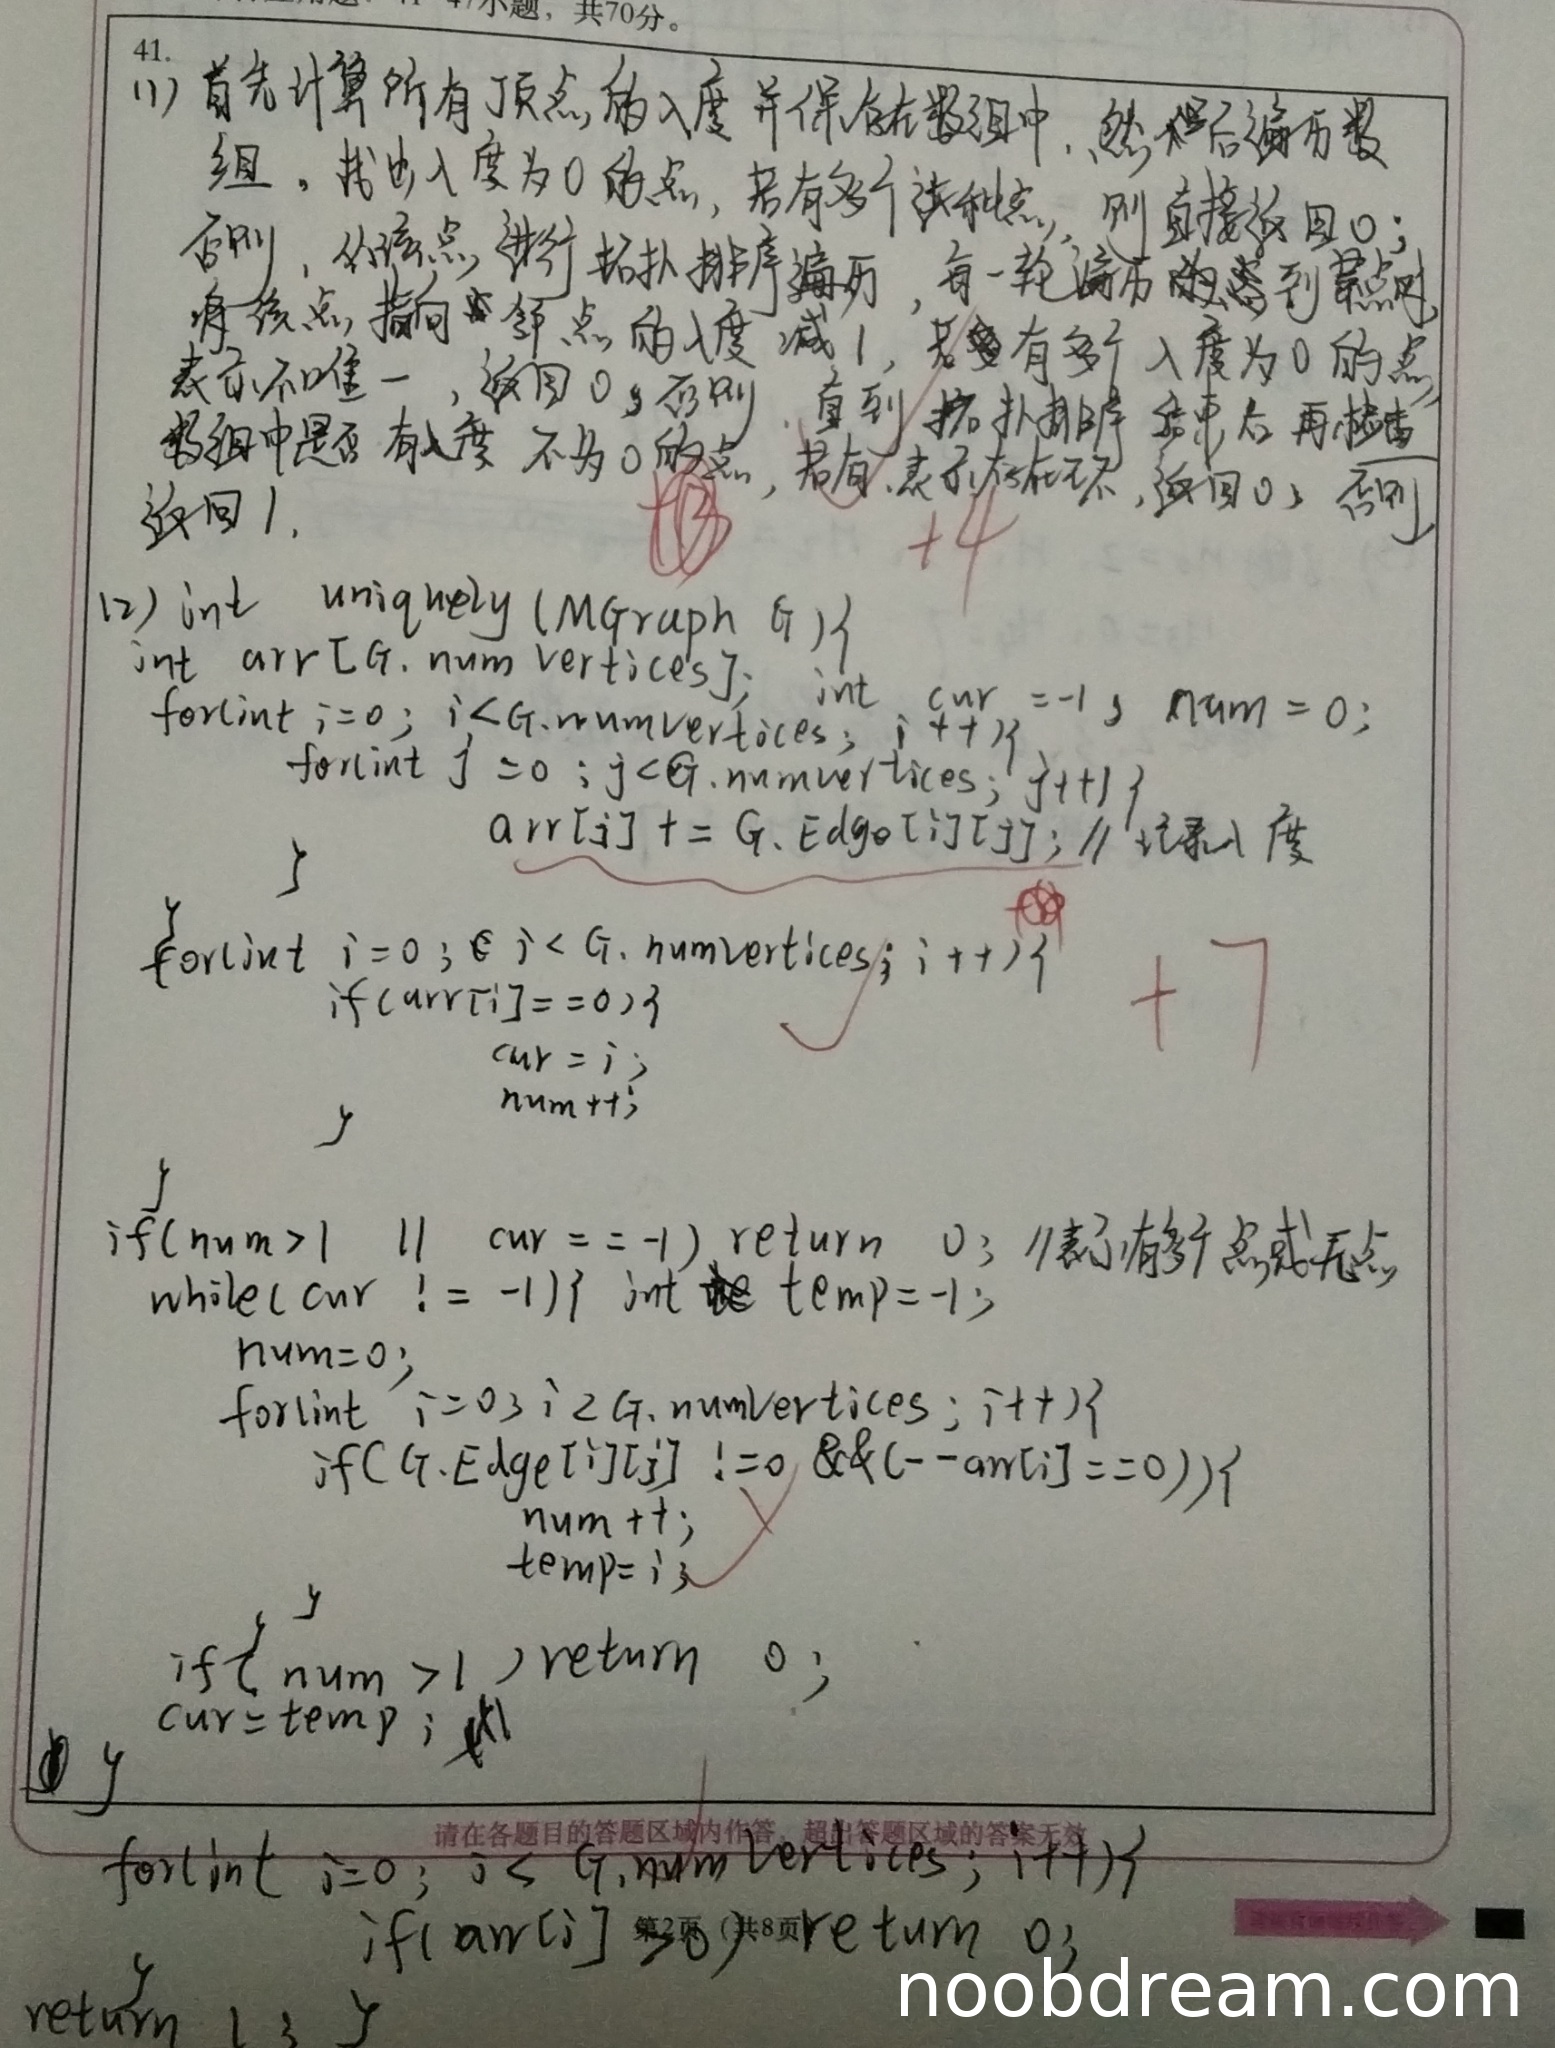 小题，共70分。
41.
(1) 首先计算所有顶点的入度并保存在数组中，然后遍历数
组，找出入度为0的点，若有多个这种点，则直接返回0；
否则，从该点进行拓扑排序遍历，每一轮遍历到某点时，
将该点指向邻点的入度减1，若有多个入度为0的点，
表示不唯一，返回0；否则，直到拓扑排序结束后再检查
数组中是否有入度不为0的点，若有，表示存在环，返回0；否则
返回1.
+4
(2) int uniquely(MGraph G){
int arr[G.numVertices]; int cur = -1, num = 0;
for(int i=0; i<G.numvertices; i++){
for(int j=0; j<G.numvertices; j++){
arr[j] += G.Edge[i][j]; // 记录入度
}
}
for(int i=0; i<G.numvertices; i++){
+7
if(arr[i]==0){
cur = i;
num++;
}
}
if(num>1 || cur==-1) return 0; //表示有多个点或无点
while(cur != -1){ int temp=-1;
num=0;
for(int i=0; i<G.numVertices; i++){
if(G.Edge[i][j] !=0 &&(--arr[i]==0)){
num++;
temp=i;
}
}
if(num>1) return 0;
cur=temp;
}
请在各题目的答题区域内作答，超出答题区域的答案无效
for(int i=0; i< G.numVertices; i++){
if(arr[i] >0) return 0;
第2页（共8页）
}
return 1; }
noobdream.com